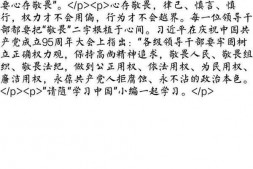 要心存敬畏"。</p><p>心存敬畏，律己、慎言、慎
行，权力才不会用偏，行为才不会越界。每一位领导干
部都要把"敬畏"二字根植于心间。习近平在庆祝中国共
产党成立95周年大会上指出："各级领导干部要牢固树
立正确权力观，保持高尚精神追求，敬畏人民、敬畏组
织、敬畏法纪，做到公正用权、依法用权、为民用权、
廉洁用权，永葆共产党人拒腐蚀、永不沾的政治本色。
</p><p>"请随"学习中国"小编一起学习。</p>